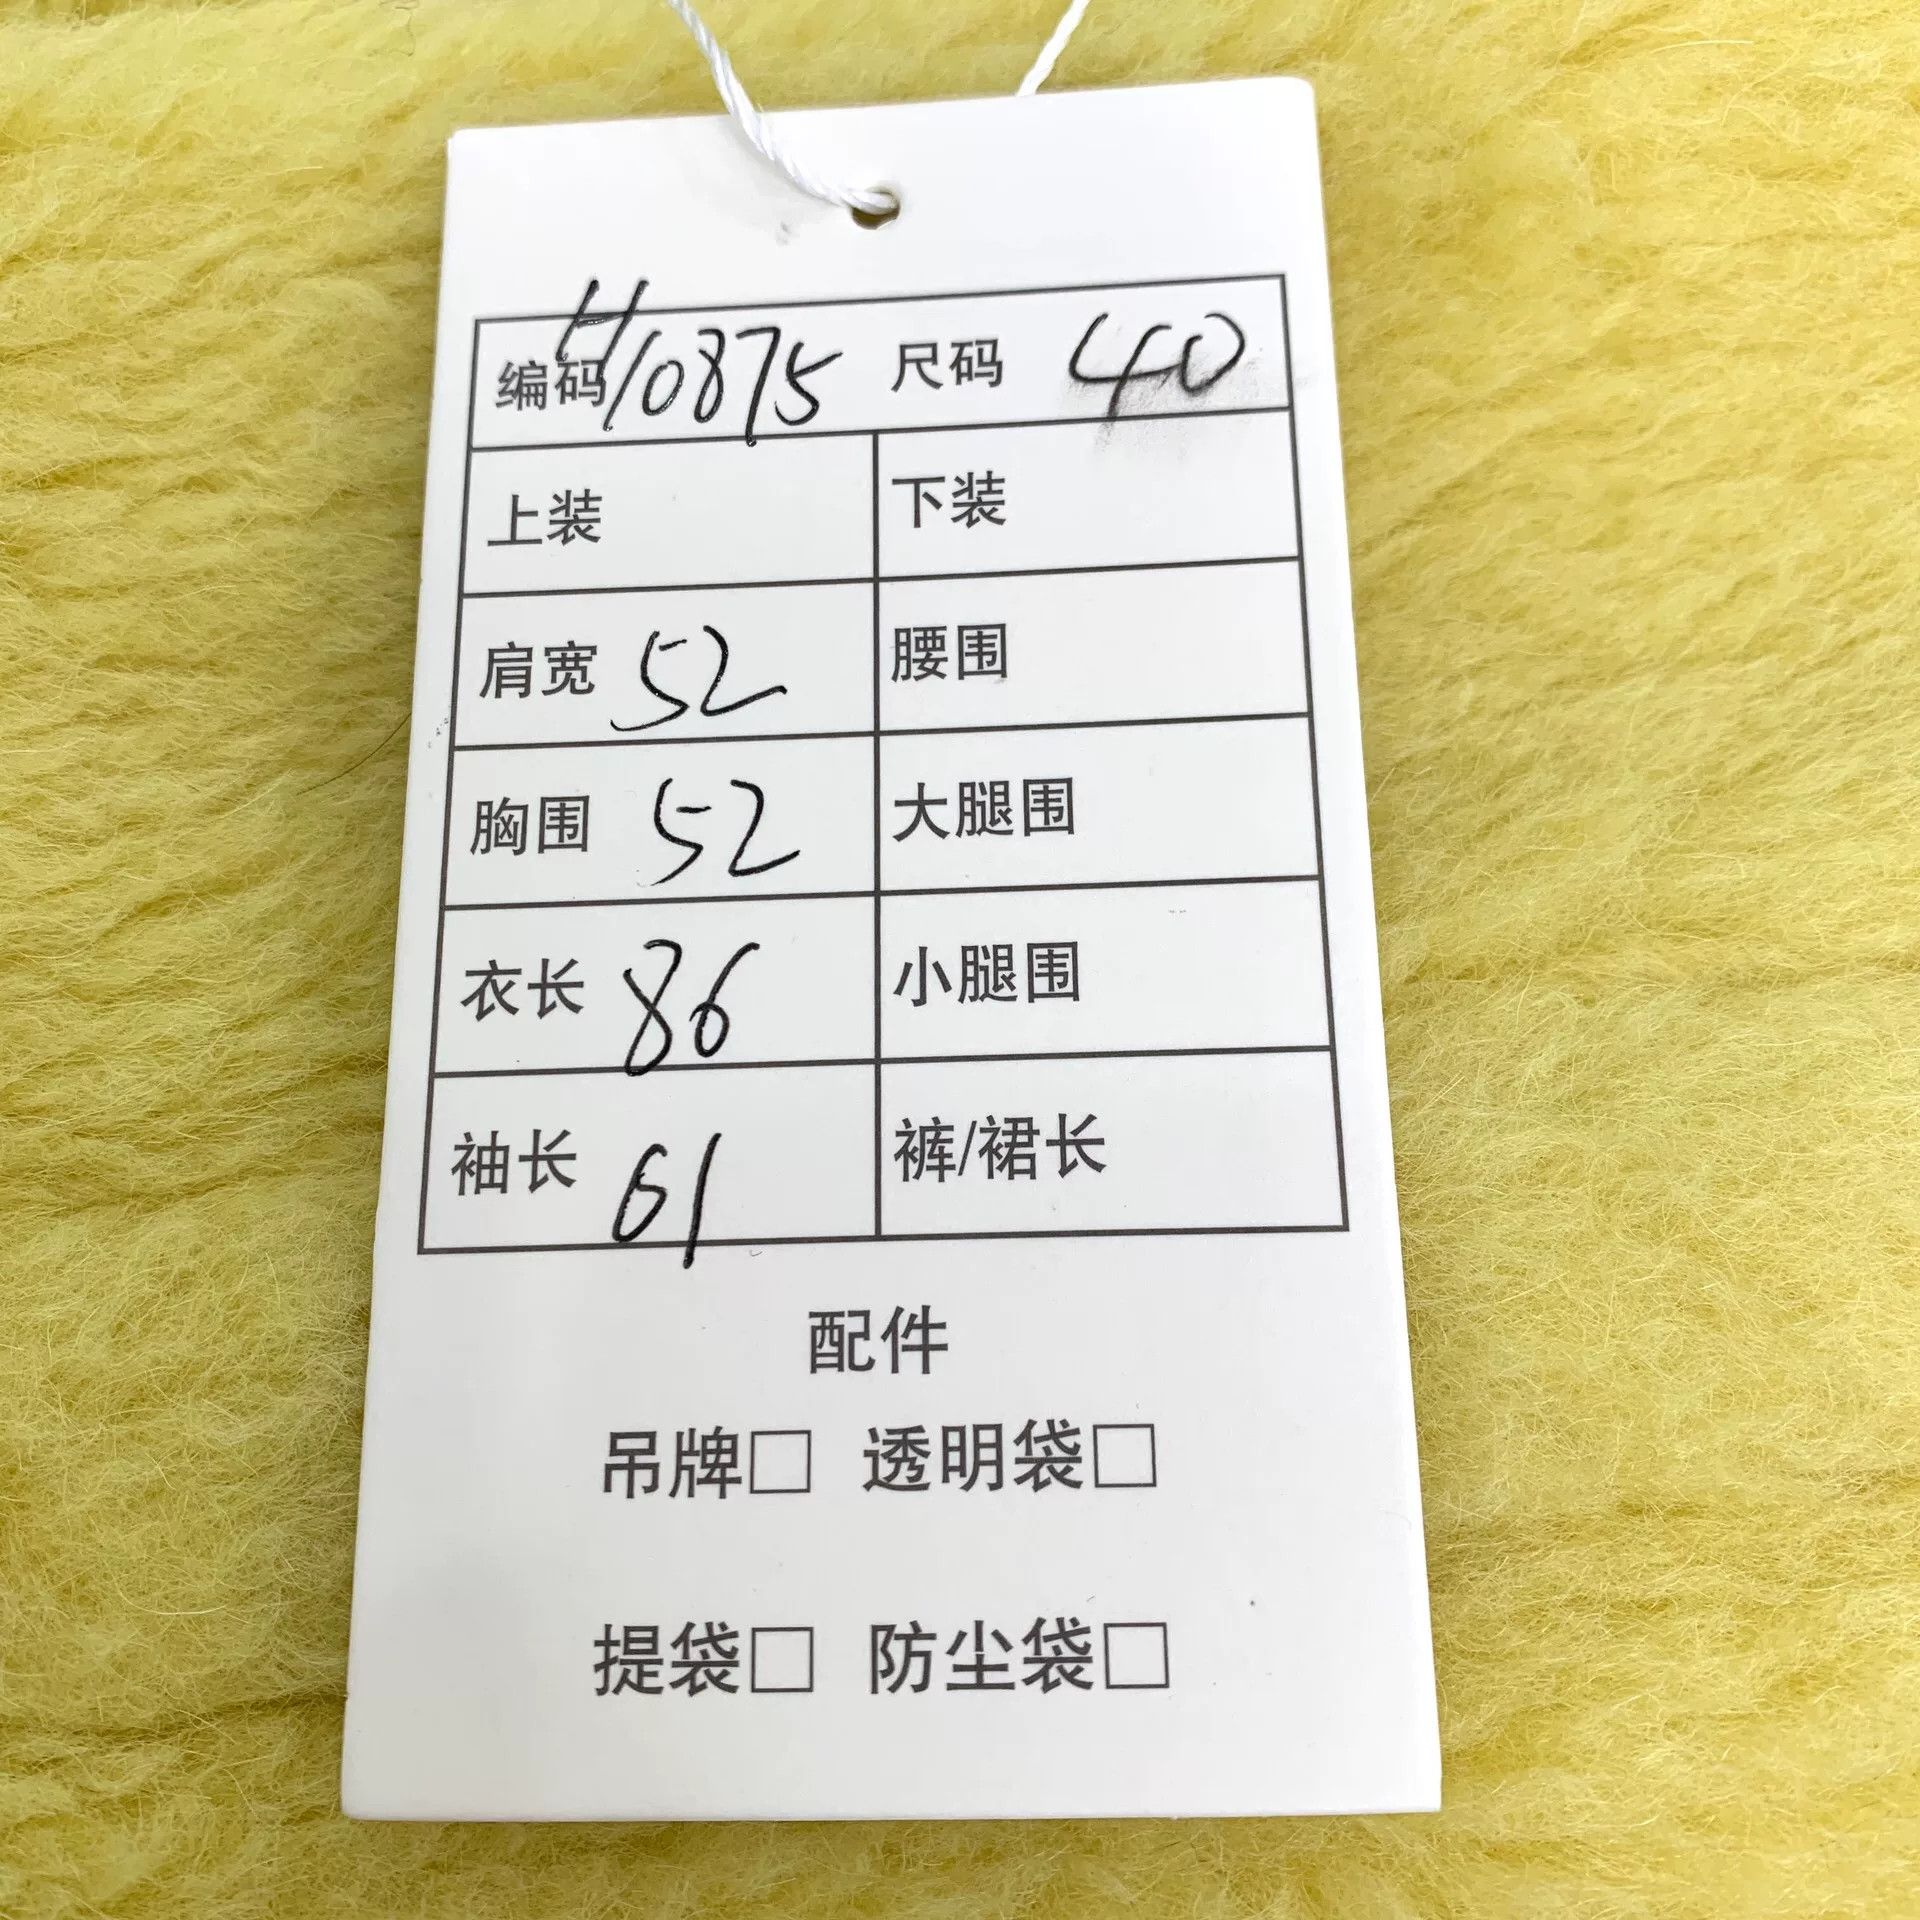 编码 H10875 尺码 40
上装 下装
肩宽 52 腰围
胸围 52 大腿围
衣长 86 小腿围
袖长 61 裤/裙长
配件
吊牌□ 透明袋□
提袋□ 防尘袋□